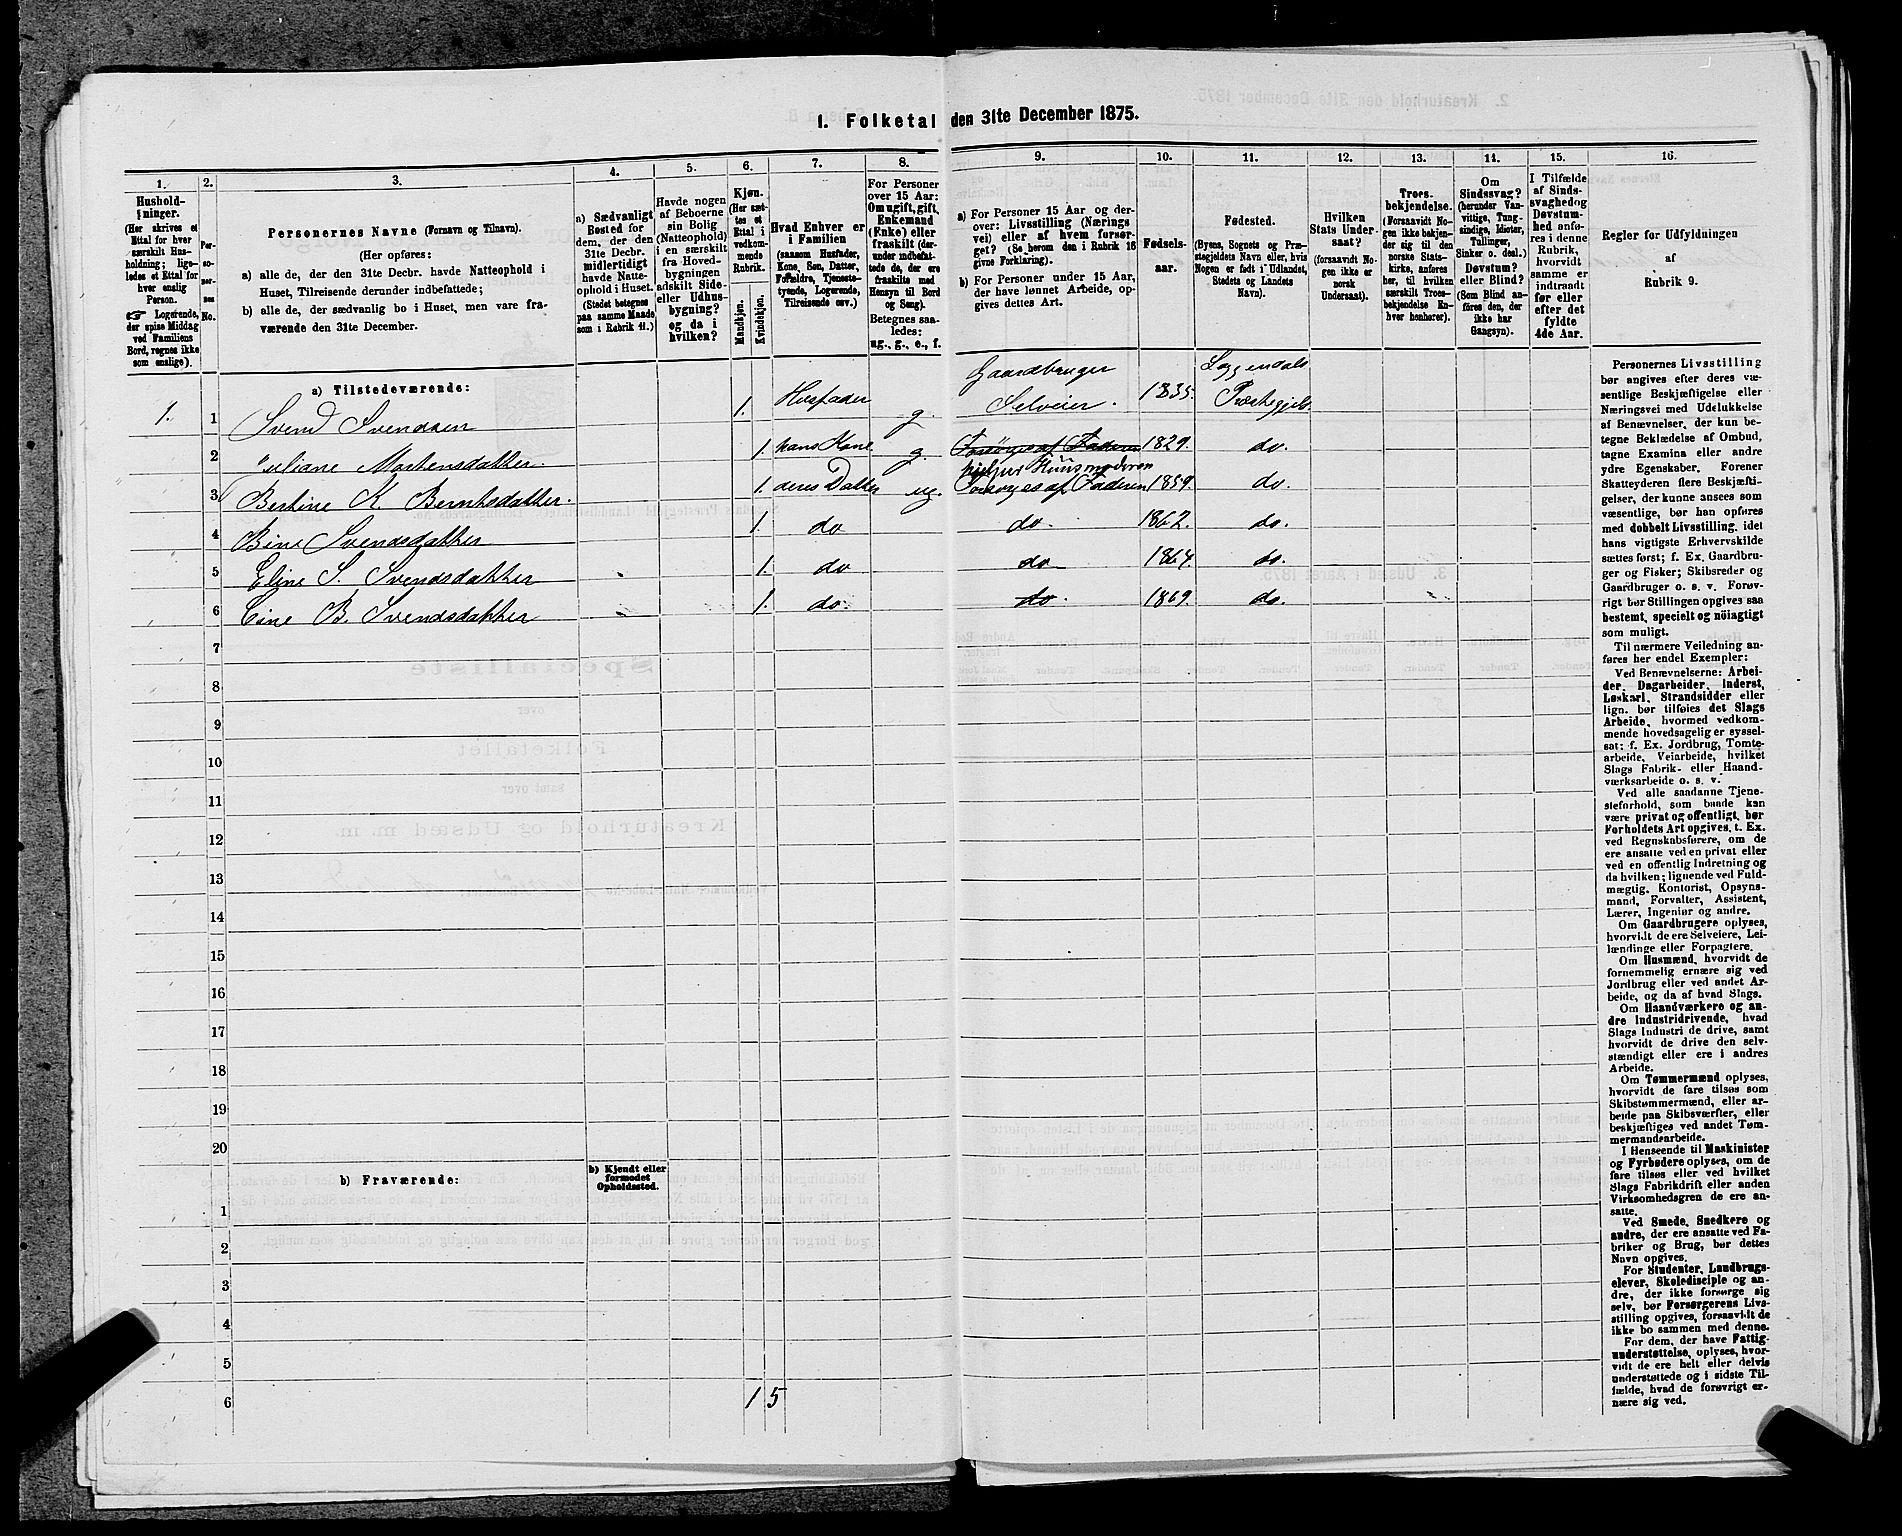 1. Folketal den 31te December 1875.
1.
Hushold-
ninger.
(Her skrives et
Ettal for hver
særskilt Hus-
holdning; lige-
ledes et Ettal for
hver enslig
Person.
☞ Logerende,
der spise Middag
ved Familiens
Bord, regnes ikke
som enslige).
2.
Per-
so-
ner-
nes
No.
3.
Personernes Navne (Fornavn og Tilnavn).
(Her opføres:
a) alle de, der den 31te Decbr. havde Natteophold i
Huset, Tilreisende derunder indbefattede;
b) alle de, der sædvanlig bo i Huset, men vare fra-
værende den 31te December.
4.
a) Sædvanligt
Bosted for
dem, der den
31te Decbr.
midlertidigt
havde Natte-
ophold i Huset.
(Stedet betegnes
paa samme Maade
som i Rubrik 11.)
5.
Havde nogen
af Beboerne
sin Bolig
(Natteophold)
i en særskilt
fra Hoved-
bygningen
adskilt Side-
eller Udhus-
bygning?
og da i
hvilken?
6.
Kjøn.
(Her sæt-
tes et
Ettal i
vedkom-
mende
Rubrik.
Mandkjøn.
Kvindekjøn.
7.
Hvad Enhver er
i Familien
(saasom Husfader,
Kone, Søn, Datter,
Forældre, Tjeneste-
tyende, Logerende,
Tilreisende osv.)
8.
For Personer
over 15 Aar:
Om ugift, gift,
Enkemand
(Enke) eller
fraskilt (der-
under indbefat-
tede de, der ere
fraskilte med
Hensyn til Bord
og Seng).
Betegnes saa-
ledes:
ug., g., e., f.
9.
a) For Personer 15 Aar og der-
over: Livsstilling (Nærings
vei) eller af hvem forsør-
get? (Se herom den i Rubrik 16
givne Forklaring).
b) For Personer under 15 Aar,
der have lønnet Arbeide, op-
gives dettes Art.
10.
Fødsels-
aar.
11.
Fødested.
(Byens, Sognets og Præ-
stegjeldets Navn eller, hvis
Nogen er født i Udlandet,
Stedets og Landets
Navn).
12.
Hvilken
Stats Under-
saat?
(forsaavidt No-
gen ikke er
norsk
Undersaat).
13.
Troes-
bekjendelse.
(Forsaavidt No-
gen ikke bekjen-
der sig til den
norske Stats-
kirke, anføres
her, til hvilken
særskilt Troes-
bekjendelse En-
hver henhører).
14.
Om
Sindssvag?
(herunder Van-
vittige, Tung-
sindige, Idioter,
Tullinger,
Sinker o. desl.)
Døvstum?
eller Blind?
(Som Blind an-
føres den, der
ikke har
Gangsyn).
15.
I Tilfælde
af Sinds-
svaghed og
Døvstum-
hed anfø-
res i denne
Rubrik,
hvorvidt
samme er
indtraadt
før eller
efter det
fyldte
4de Aar.
16.
Regler for Udfyldningen
af
Rubrik 9.
a) Tilstedeværende:
Gaardbruger
1. 1 Svend Svendsen 1. Husfader g. Selveier. 1835. Præstegjeld
2 Juliane Mortensdatter. 1. hans Kone g. Forsørges af Faderen 1829. do.
hjelper Huusmoderen
3 Bertine K. Berntsdatter. 1. deres Datter ug. Forsørges af Faderen 1859. do.
4 Bine Svendsdatter 1. do do. 1862. do.
5 Eline S. Svendsdatter 1. do do 1864. do.
6 B. Svendsdatter 1. do. do. 1869. do.
7
8
9
10
11
12
13
14
15
16
17
18
19
20
b) Fraværende:
b) Kjendt eller
formodet
Opholdssted.
1
2
3
4
5
6
1 5
Personernes Livsstilling
bør angives efter deres væ-
sentlige Beskjæftigelse eller
Næringsvei med Udelukkelse
af Benævnelser, der kun be-
tegne Beklædelse af Ombud,
tagne Examina eller andre
ydre Egenskaber. Forener
Skatteyderen flere Beskjæfti-
gelser, der kunne ansees som
væsentlige, bør han opføres
med dobbelt Livsstilling, idet
hans vigtigste Erhvervskilde
sættes først; f. Ex. Gaardbru-
ger og Fisker; Skibsreder og
Gaardbruger o. s. v. Forøv-
rigt bør Stillingen opgives saa
bestemt, specielt og nöiagtigt
som muligt.
Til nærmere Veiledning an-
føres her endel Exempler:
Ved Benævnelserne: Arbei-
der, Dagarbeider, Inderst,
Løskarl, Strandsidder eller
lign. bør tilføies det Slags
Arbeide, hvormed vedkom-
mende hovedsagelig er syssel-
sat; f. Ex. Jordbrug, Tomte-
arbeide, Veiarbeide, hvilket
Slags Fabrik- eller Haand-
værksarbeide o. s. v.
Ved alle saadanne Tjene-
steforhold, som baade kan
være privat og offentligt, bør
Forholdets Art opgives, t. Ex.
ved Regnskabsførere, om de
ere ansatte ved en privat eller
ved en offentlig Indretning og
da hvilken; lignende ved Fuld-
mægtig, Kontorist, Opsyns-
mand, Forvalter, Assistent,
Lærer, Ingeniør og andre.
Om Gaardbrugere oplyses,
hvorvidt de ere Selveiere, Lei-
lændinge eller Forpagtere.
Om Husmænd, hvorvidt de
fornemmelig ernære sig ved
Jordbrug eller ved andet Ar-
beide, og da af hvad Slags.
Om Haandværkere og an-
dre Industridrivende, hvad
Slags Industri de drive, samt
hvorvidt de drive den selv-
stændigt eller ere i andres
Arbeide.
Om Tømmermænd oplyses,
hvorvidt de fare tilsøs som
Skibstømmermænd, eller ar-
beide paa Skibsværfter, eller
beskjæftiges ved andet Tøm-
mermandsarbeide.
I Henseende til Maskinister
og Fyrbødere oplyses, om de
fare tilsøs eller ved hvilket
Slags Fabrikdrift eller anden
Virksomhedsgren de ere an-
satte.
Ved Smede, Snedkere og
andre, der ere ansatte ved Fa-
briker og Brug, bør dettes
Navn opgives.
For Studenter, Landbrugs-
elever, Skoledisciple og an-
dre, der ikke forsørge sig
selv, bør Forsørgerens Livs-
stilling opgives, forsaavidt de
ikke bo sammen med denne.
For dem, der have Fattig-
understøttelse, oplyses, hvor-
vidt de ere helt eller delvis
understøttede og i sidste Til-
fælde, hvad de forøvrigt er-
nære sig ved.